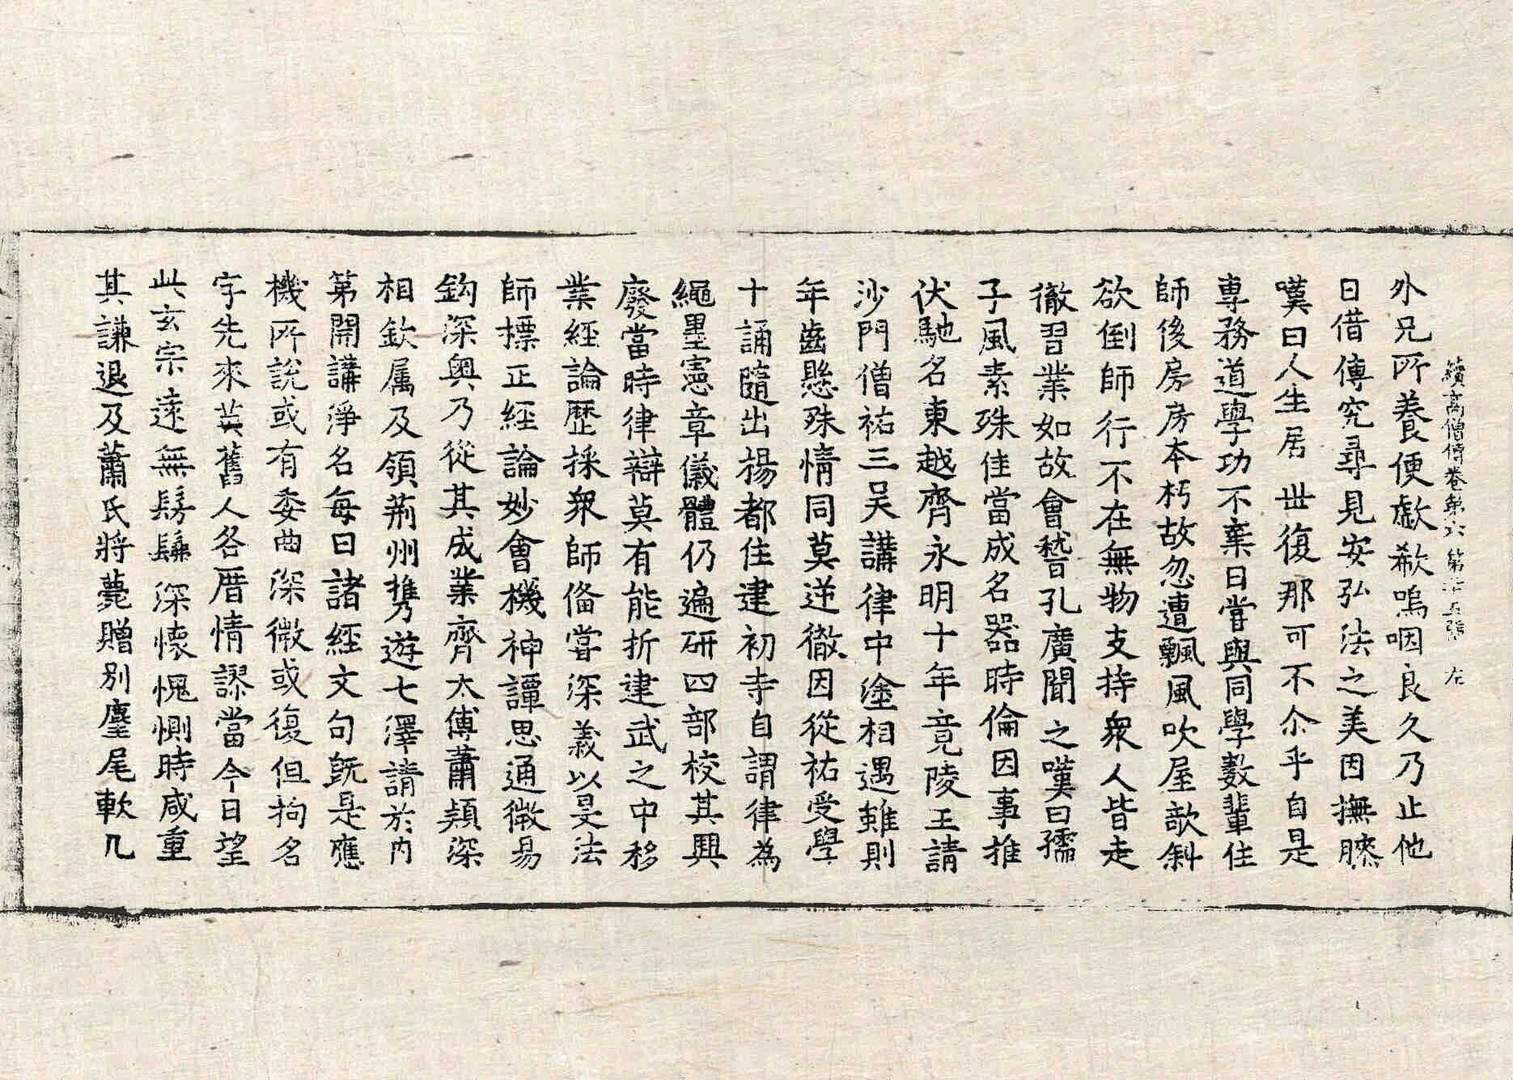 續高僧傳卷第六 第二十五張 左
外兄所養便歔欷嗚咽良久乃止他
日借傳究尋見安弘法之美因撫膝
嘆曰人生居世復那可不尒乎自是
專務道學功不棄日嘗與同學數輩住
師後房房本朽故忽遭飄風吹屋欹斜
欲倒師行不在無物支持衆人皆走
徹習業如故會稽孔廣聞之嘆曰孺
子風素殊佳當成名器時倫因事推
伏馳名東越齊永明十年竟陵王請
沙門僧祐三吴講律中塗相遇雖則
年齒懸殊情同莫逆徹因從祐受學
十誦隨出揚都住建初寺自謂律為
繩墨憲章儀體仍遍研四部校其興
廢當時律辯莫有能折建武之中移
業經論歷採衆師備嘗深義以旻法
師摽正經論妙會機神譚思通微易
鈎深奧乃從其成業齊太傅蕭穎深
相欽属及領荊州携遊七澤請於内
第開講淨名每日諸經文句既是應
機所說或有委曲深微或復但拘名
字先來英舊人各厝情謬當今日望
此玄宗遠無髣髴深懷愧惻時咸重
其謙退及蕭氏將薨贈別麈尾軟几